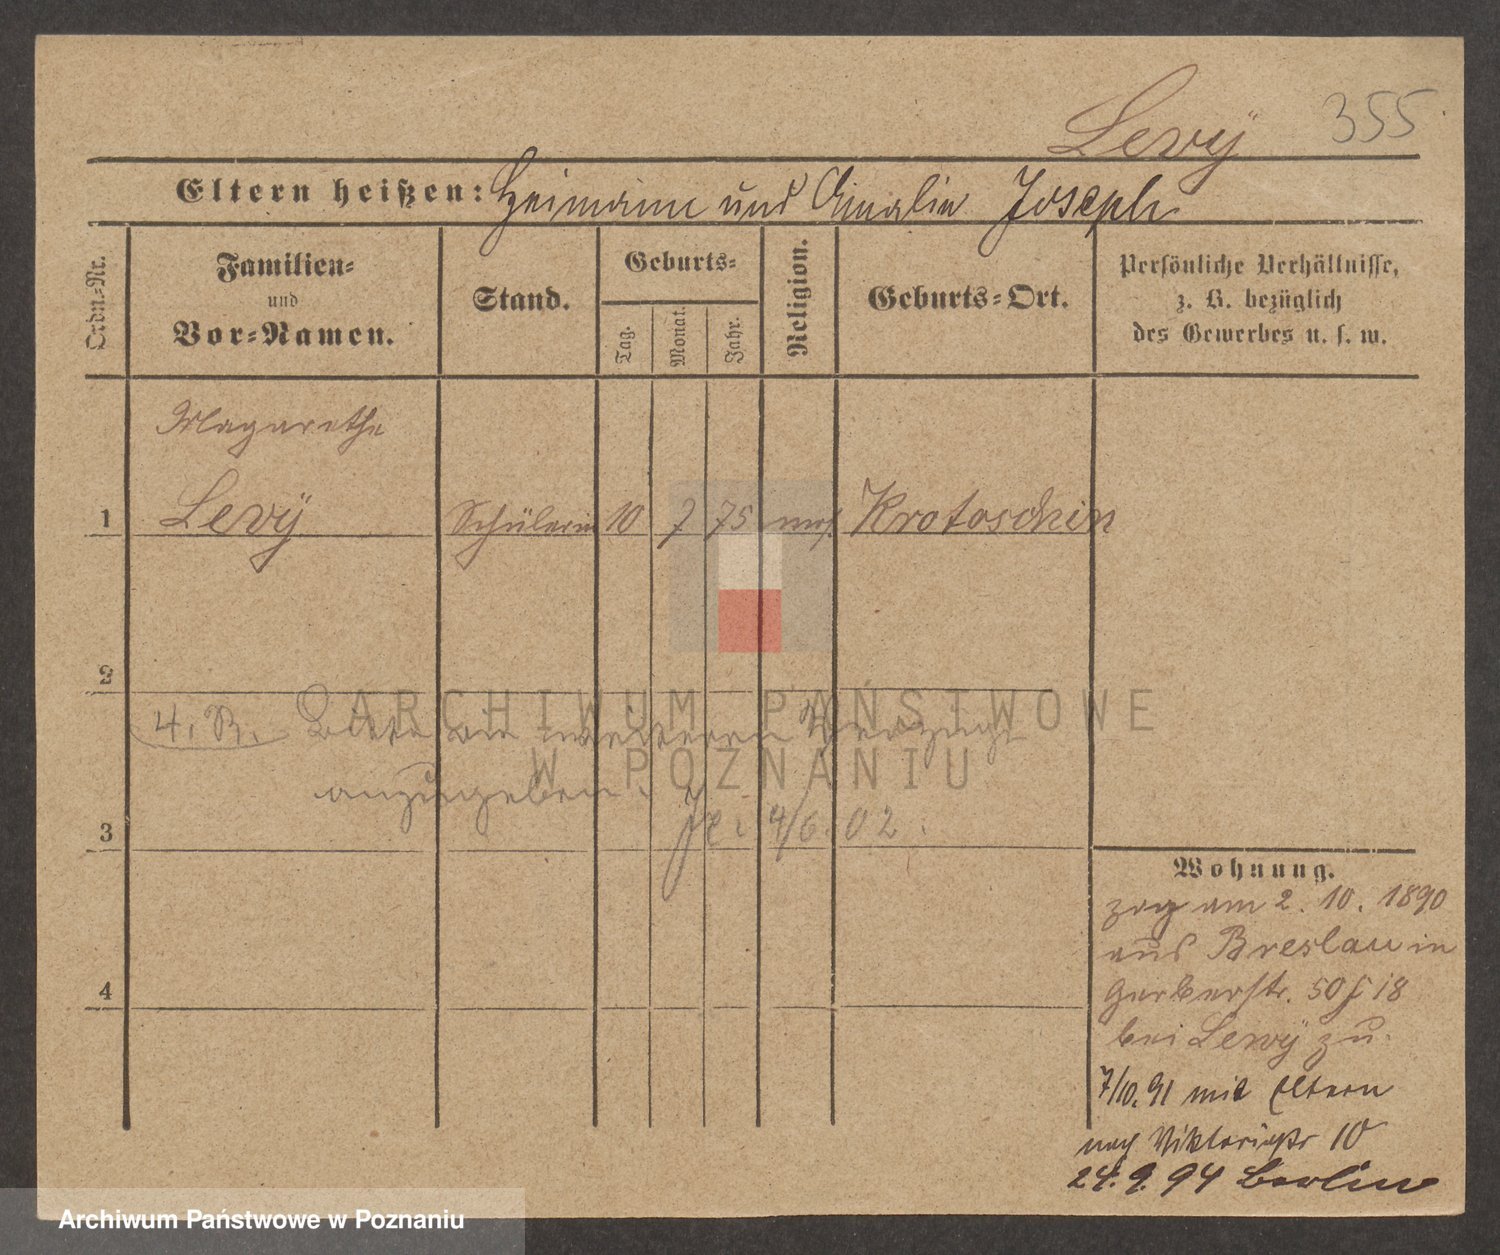 Levÿ 355
Eltern heißen: Heimann und Amalie Joseph
Ordn.-Nr.
Familien-
und
Vor-Namen.
Stand.
Geburts-
Tag.
Monat.
Jahr.
Religion.
Geburts-Ort.
Persönliche Verhältnisse,
z. B. bezüglich
des Gewerbes u. s. w.
Magarethe
1 Levÿ Schülerin 10 7 75 mos. Krotoschin
2
4. R. Bitte die weiteren
anzugeben. 4/6. 02.
3
4
Wohnung.
zog am 2. 10. 1890
aus Breslau in
Gerberstr. 50 18
bei Levÿ zu.
7/10. 91 mit Eltern
nach Viktoriastr 10
24. 9. 94 Berlin
ARCHIWUM PAŃSTWOWE
W POZNANIU
Archiwum Państwowe w Poznaniu